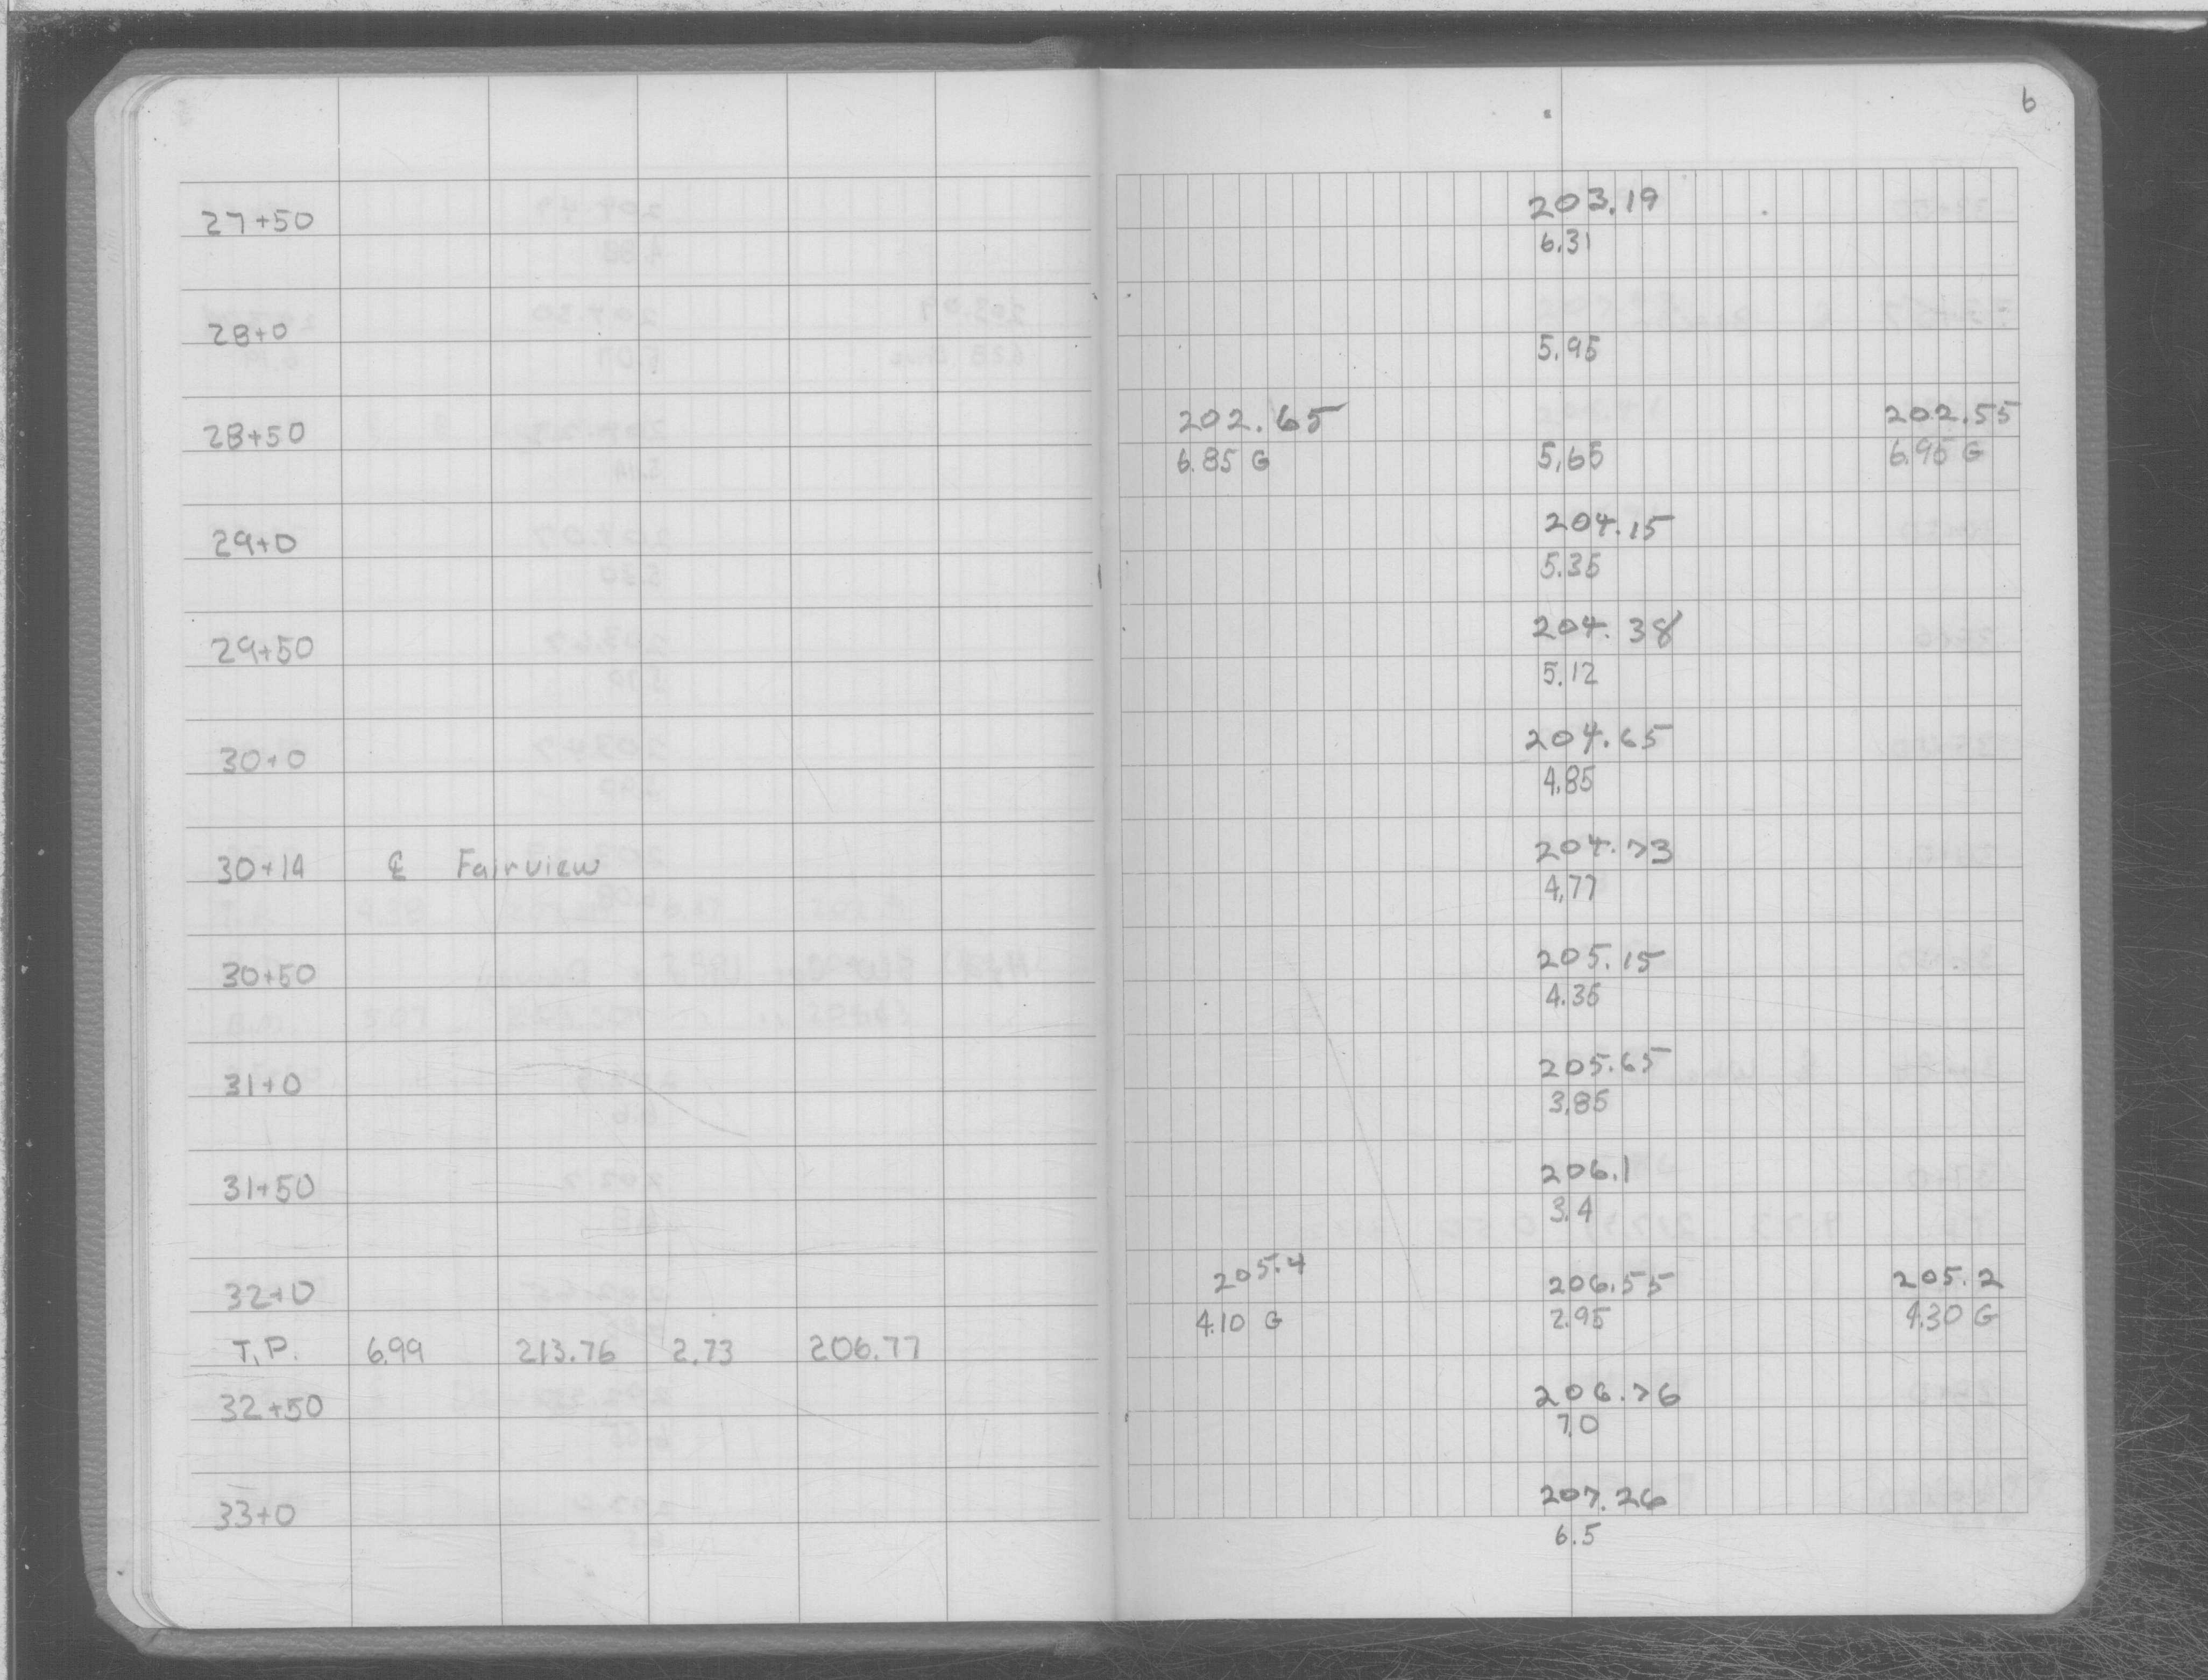 6
27+50 203.19
6.31
28+0
5.95
28+50 202.65 202.55
6.85 G 5.65 6.95 G
29+0 204.15
5.35
29+50 204.38
5.12
30+0 204.65
4.85
30+14 ℄ Fairview 204.73
4.77
30+50 205.15
4.35
31+0 205.65
3.85
31+50 206.1
3.4
32+0 205.4 206.55 205.2
4.10 G 2.95 4.30 G
T.P. 6.99 213.76 2.73 206.77
32+50 206.76
7.0
33+0 207.26
6.5